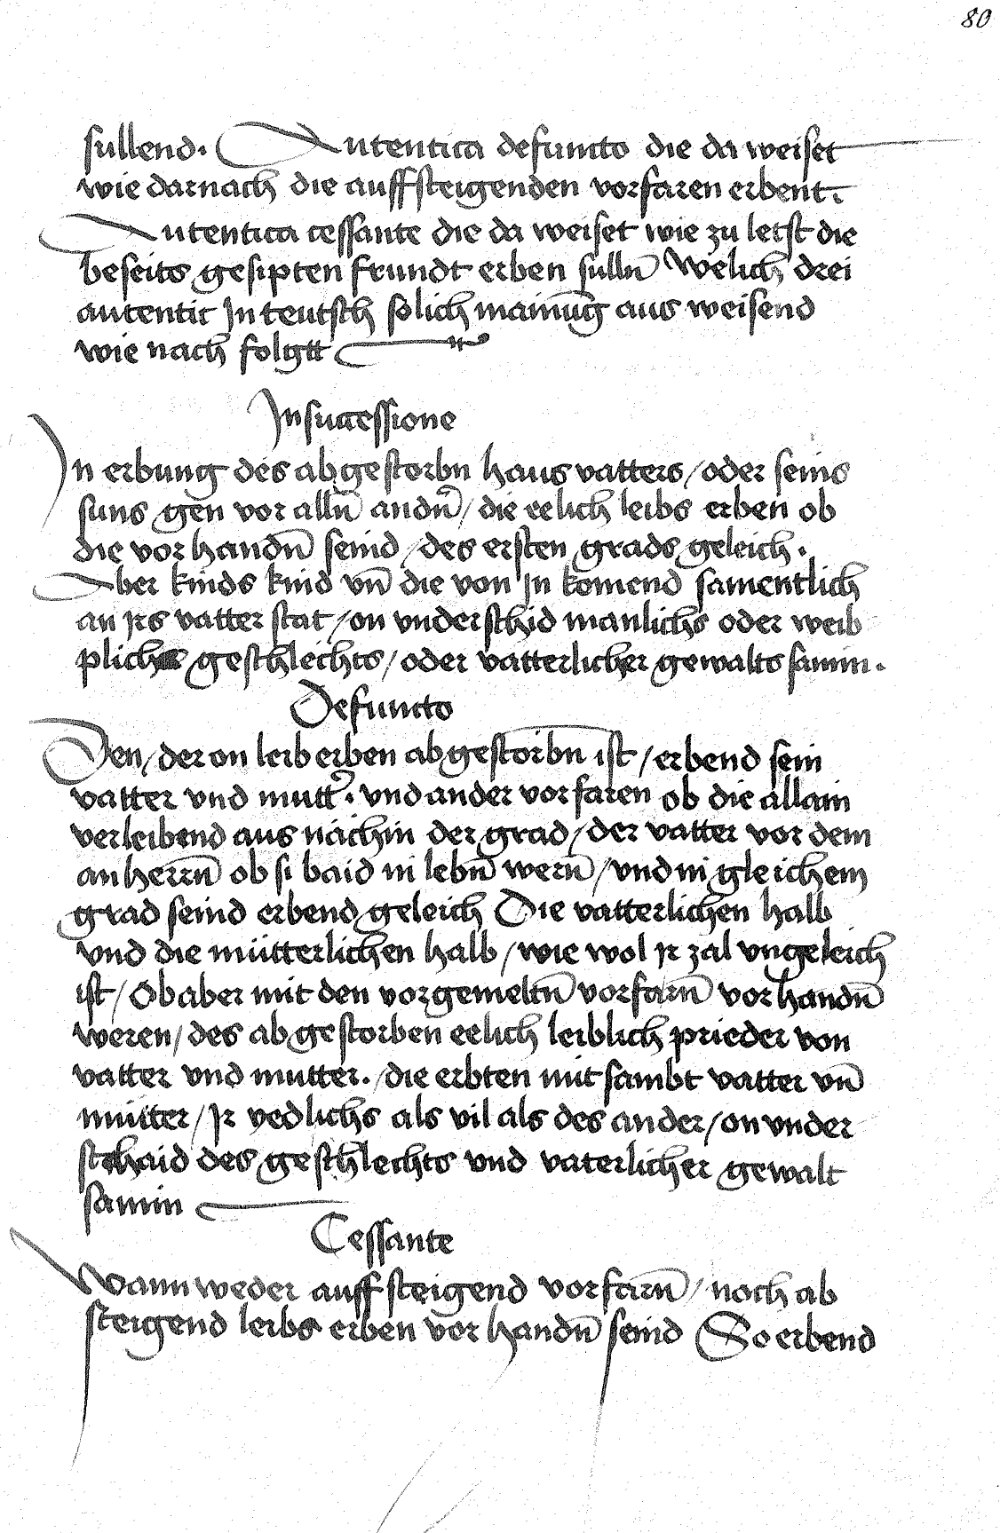 80
sullend. Autentica defuncto die da weiset
wie darnach die auffsteigenden vorfaren erbent.
Autentica cessante die da weiset wie zu letst die
beseits gesipten frundt erben sulln̄ Welich drei
autentic Jn teutsch solich mainūg aus weisend
wie nach folgtt
Jn successione
Jn erbung des abgestorbn haus vatters / oder seins
suns gen vor alln̄ andn̄ / die eelich leibs erben ob
die vor handn̄ seind / des ersten grads geleich.
Aber kinds kind vn̄ die von Jn komend samentlich
an Jrs vatter stat / on vnderschid manlichs oder weib
plichs geschlechts / oder vatterlicher gewaltsamin.
Defuncto
Den / der on leib erben abgestorbn̄ ist / erbend sein
vatter vnd mutt̓. vnd ander vorfaren ob die allain
verleibend aus nächin der grad / der vatter vor dem
anherrn̄ ob si baid in lebn̄ wern̄ / vnd in gleichem
grad seind erbend geleich Die vatterlichen halb
vnd die mütterlichen halb / wie wol Jr zal vngeleich
ist / Ob aber mit den vorgemeltn̄ vorfarn̄ vorhandn̄
weren / des abgestorben eelich leiblich prieder von
vatter vnd mutter. / die erbten mit sambt vatter vn̄
mütter / Jr yedlichs als vil als des ander / on vnder
schaid des geschlechts vnd vaterlicher gewalt
samin
Cessante
Wann weder auffsteigend vorfarn̄ / noch ab
steigend leibs erben vor handn̄ seind So erbend